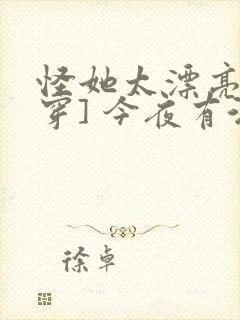 怪她太漂亮
穿]今夜有
徐卓